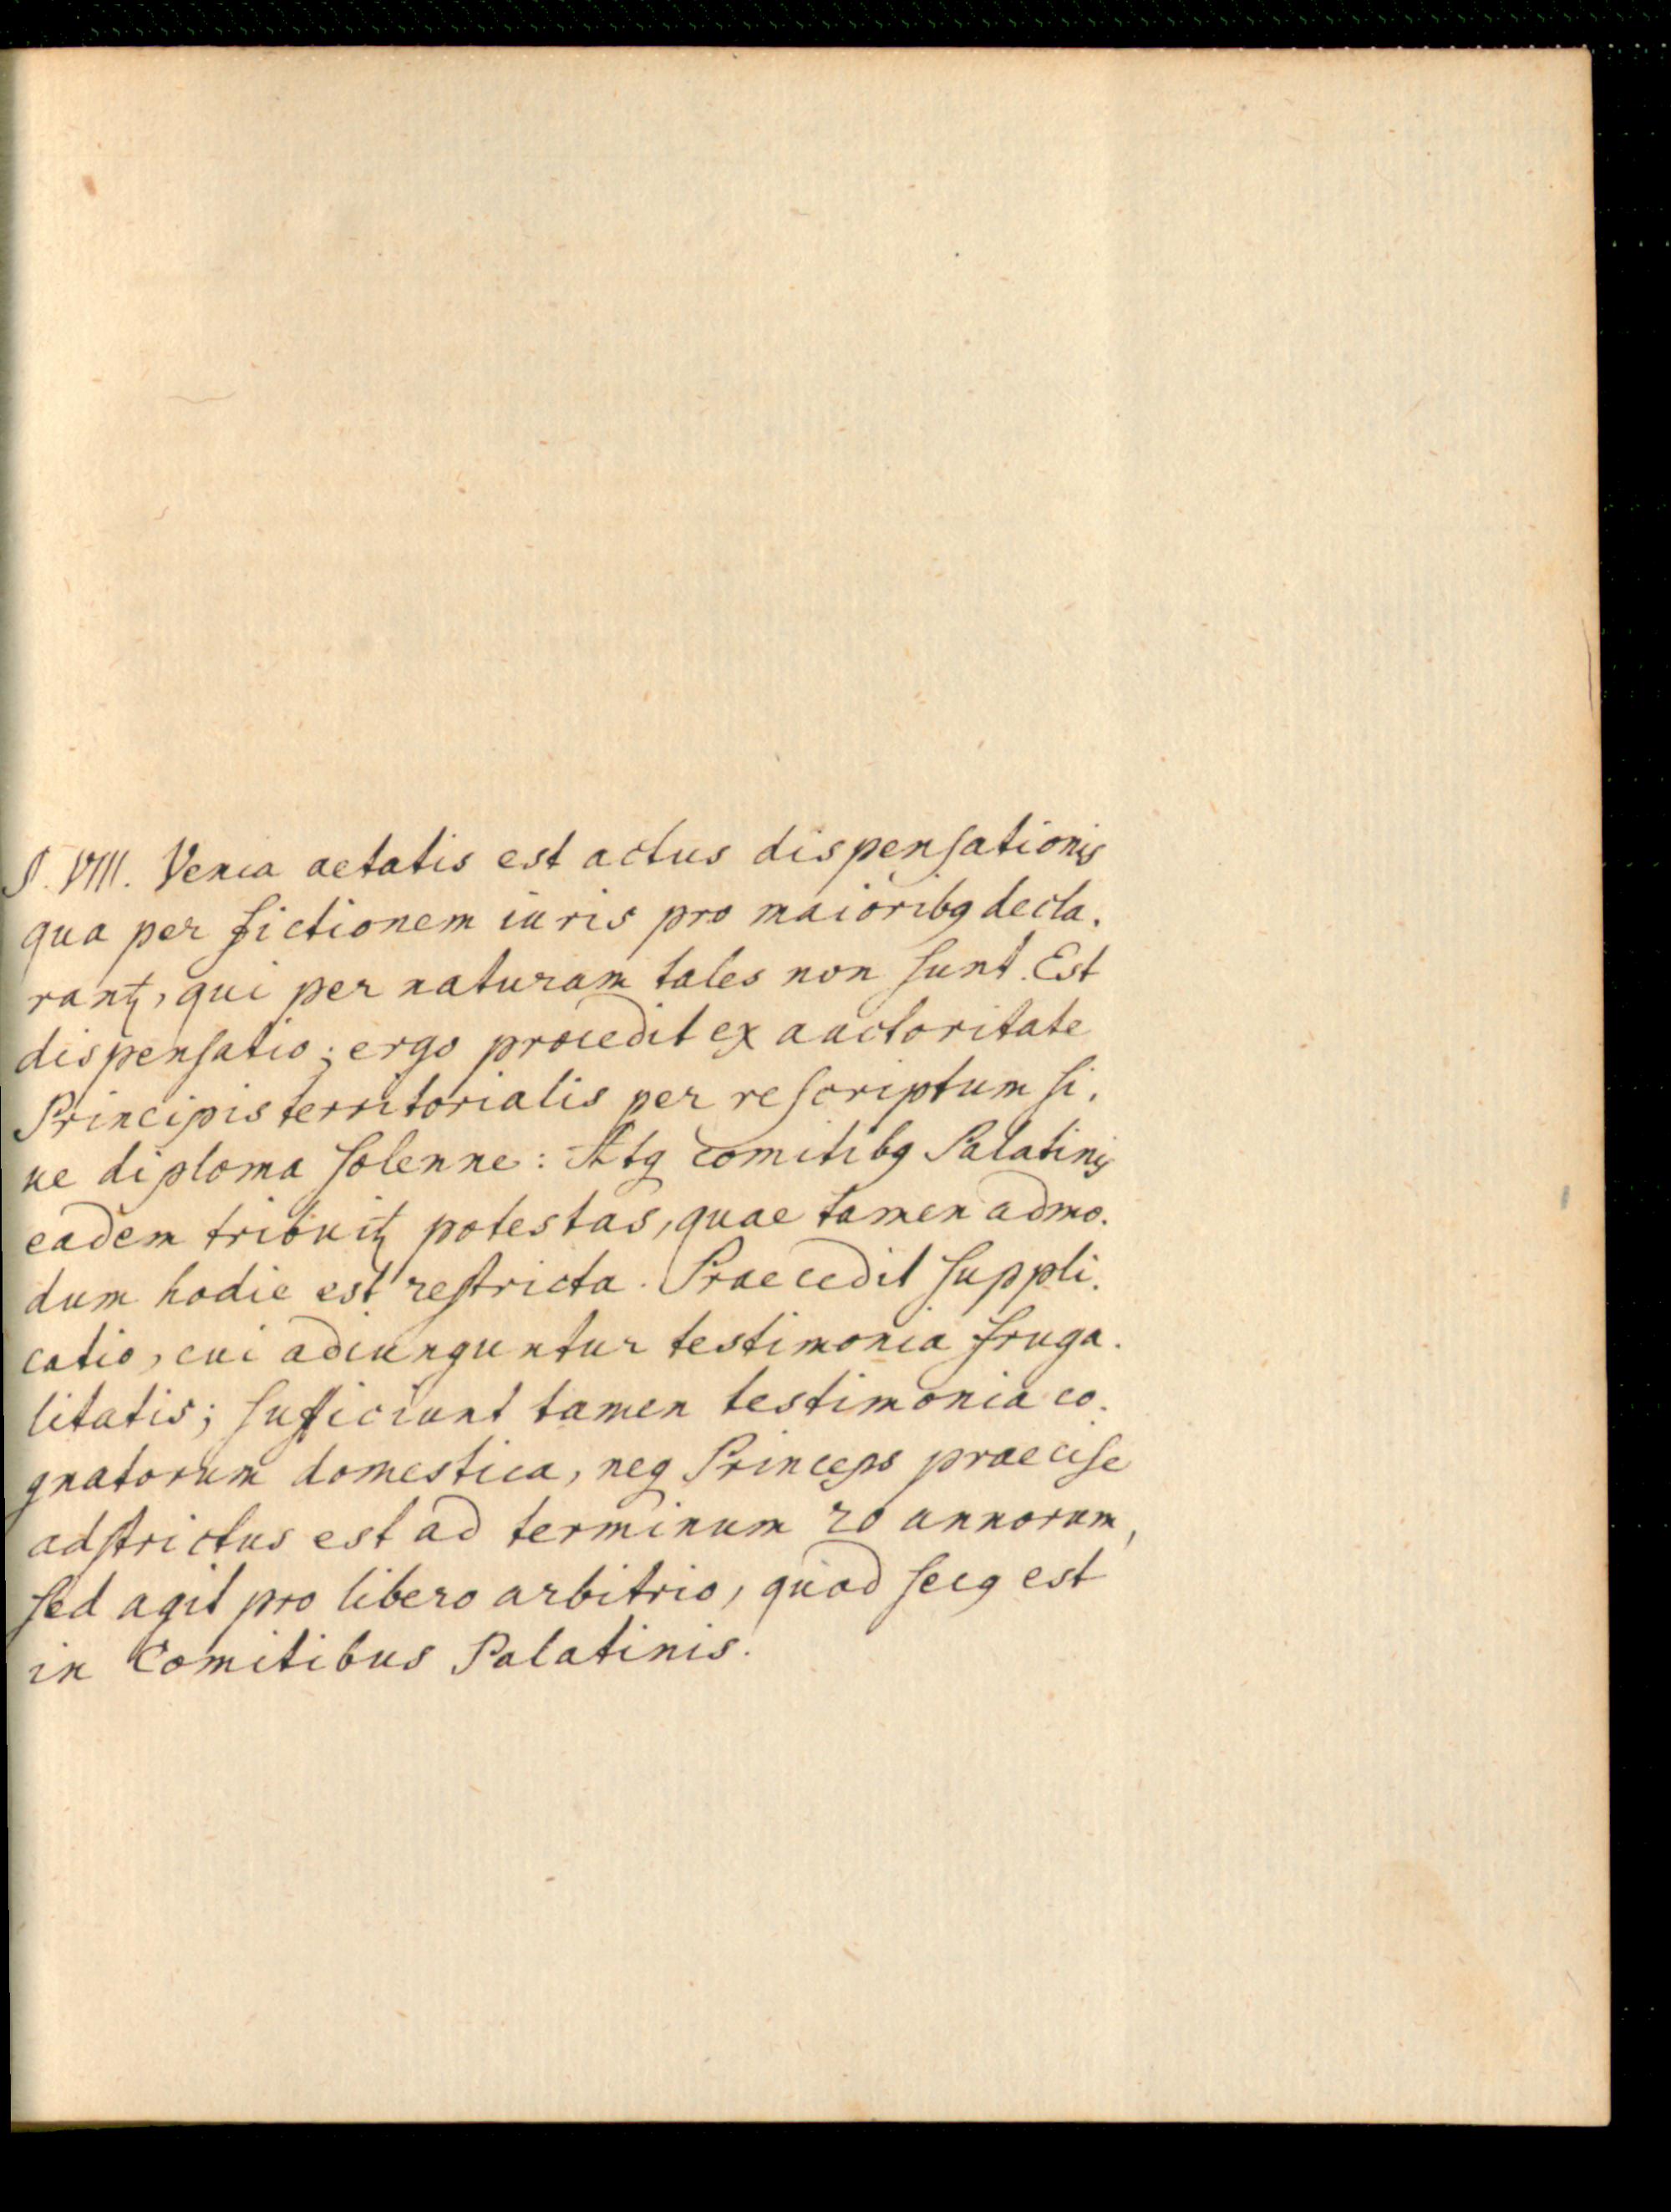 §. VIII. Venia aetatis est actus dispenſationis
qua per fictionem iuris pro maioribꝫ decla.
rantꝶ, qui per naturam tales non ſunt. Est
dispenſatio; ergo procedit ex auctoritate
Principis territorialis per reſcriptum ſi.
ue diploma ſolenne: Atqꝫ Comitibꝫ Palatinis
eadem tribuitꝶ potestas, quae tamen admo.
dum hodie est reſtricta. Praecedit ſuppli.
catio, cui adiunguntur testimonia fruga.
litatis; ſufficiunt tamen testimonia co.
gnatorum domestica, neqꝫ Princeps praeciſe
adſtrictus est ad terminum 20 annorum,
ſed agit pro libero arbitrio, quod ſecꝫ est
in Comitibus Palatinis.